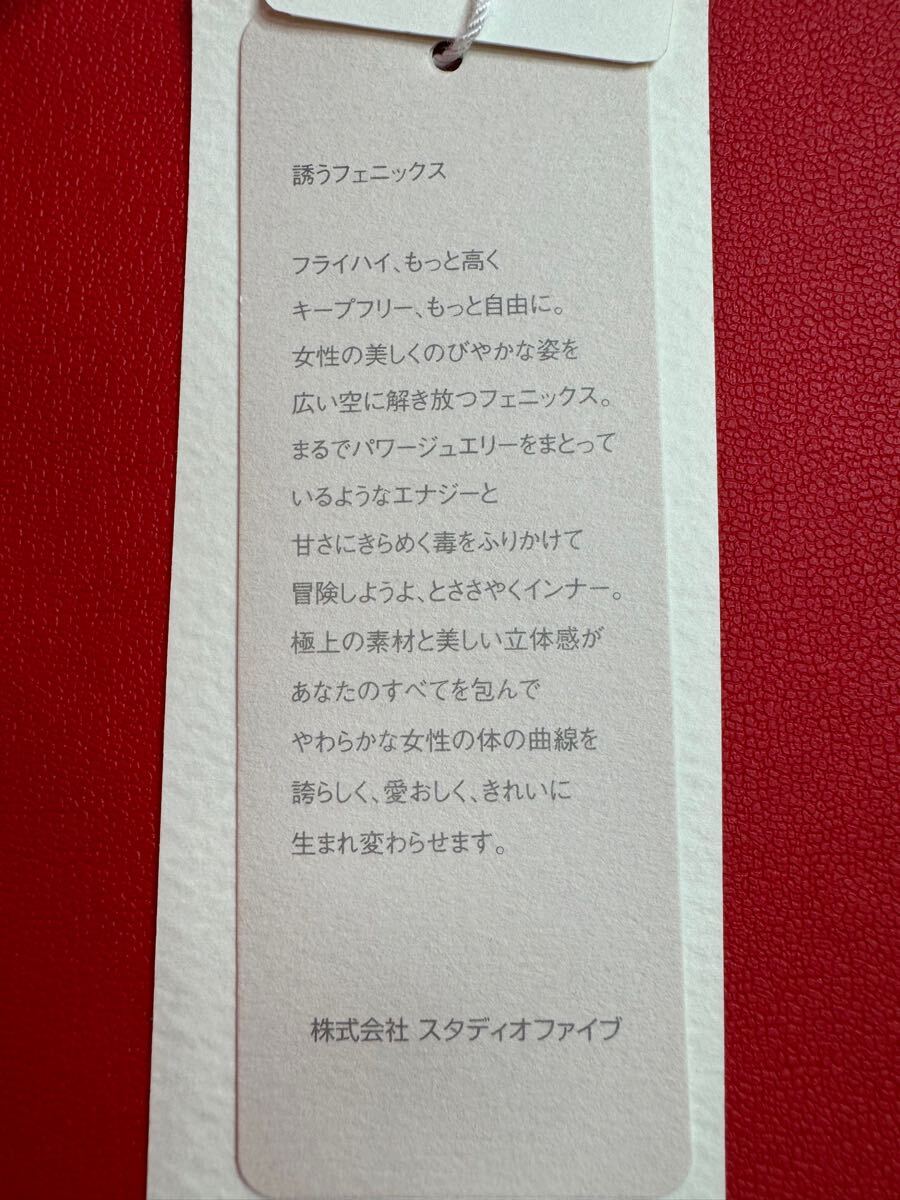 誘うフェニックス
フライハイ、もっと高く
キープフリー、もっと自由に。
女性の美しくのびやかな姿を
広い空に解き放つフェニックス。
まるでパワージュエリーをまとって
いるようなエナジーと
甘さにきらめく毒をふりかけて
冒険しようよ、とささやくインナー。
極上の素材と美しい立体感が
あなたのすべてを包んで
やわらかな女性の体の曲線を
誇らしく、愛おしく、きれいに
生まれ変わらせます。
株式会社 スタディオファイブ